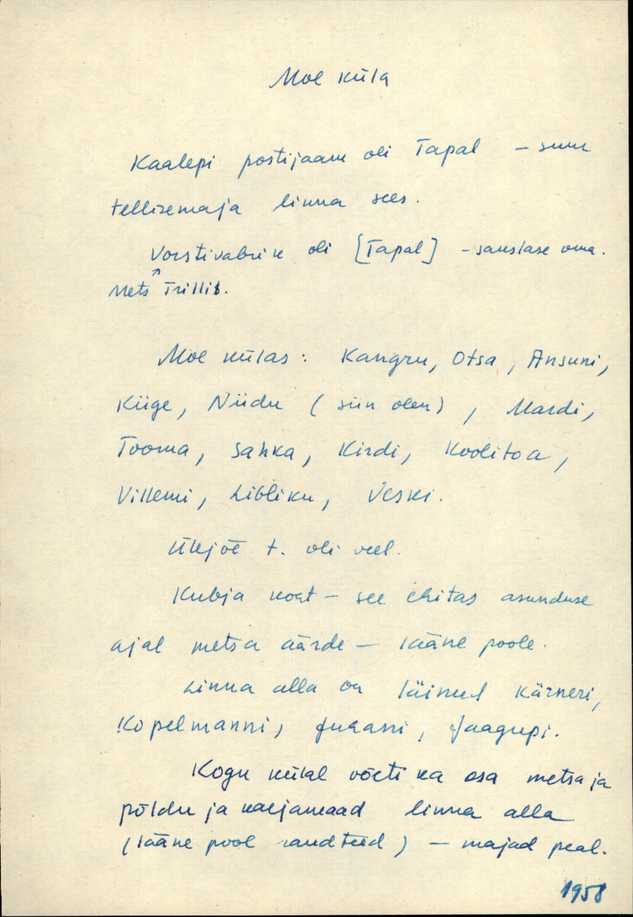 Moe küla
Kaalepi postijaam oli Tapal – suur
tellisemaja linna sees.
Vorstivabrik oli [Tapal] – sakslase oma.
Mets Trillis.
Moe külas: Kangru, Otsa, Ansuni,
Kiige, Niidu (siin olen), Mardi,
Tooma, Sahka, Kirdi, Koolitoa,
Villemi, Libliku, Veski.
Ülejõe t. oli veel.
Kubja koht – see ehitas asunduse
ajal metsa äärde – lääne poole.
Linna alla on läinud Kärneri,
Kopelmanni, Juhani, Jaagupi.
Kogu külal võeti ka osa metsa ja
põldu ja karjamaad linna alla
(lääne pool raudteed) – majad peal.
1958